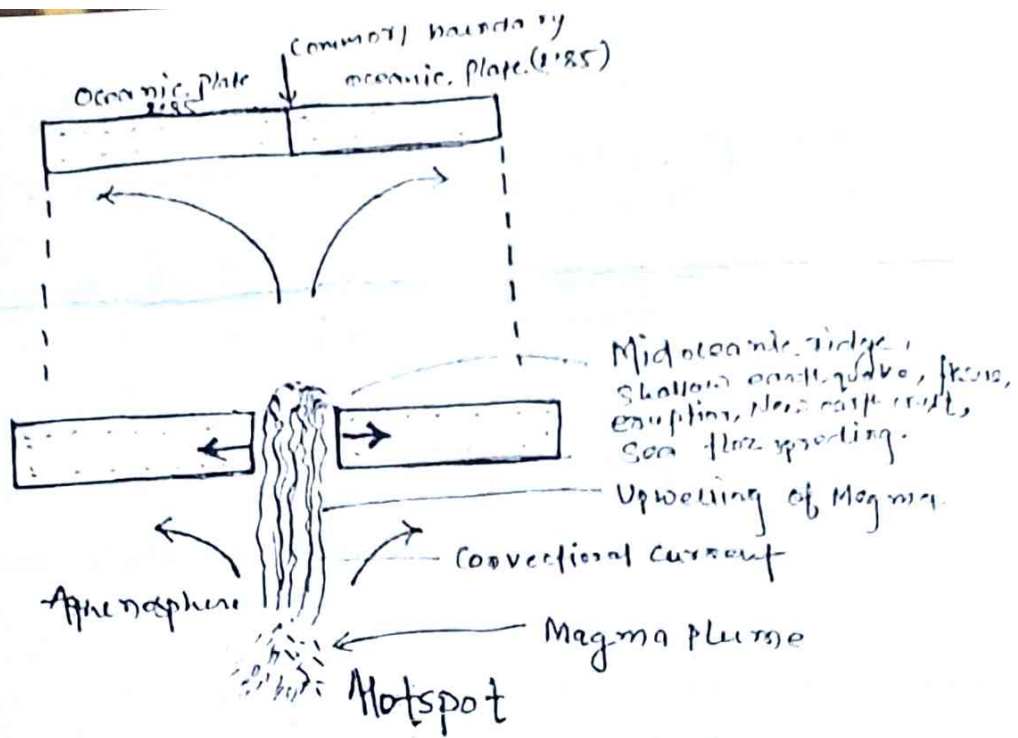 Common boundary
oceanic plate
2.85
oceanic. Plate. (2.85)
Midoceanic ridge,
Shallow earthquake,
eruption, New earth crust,
Sea flor sprading.
Upwelling of Magma.
Convectional current
Magma plume
Hotspot